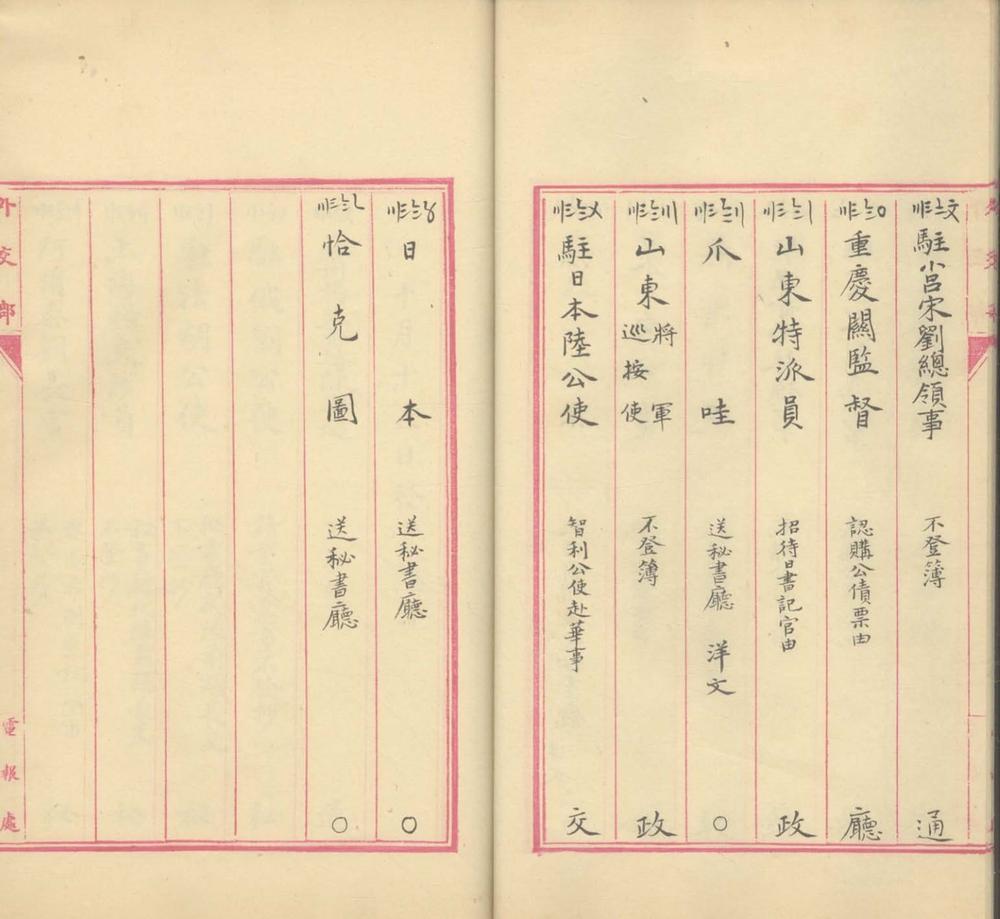 駐小呂宋劉總領事 不登簿 通
重慶關監督 認購公債票由 廳
山東特派員 招待日書記官由 政
爪哇 送秘書廳 洋文 〇
山東將軍巡按使 不登簿 政
駐日本陸公使 智利公使赴華事 交
日本 送秘書廳 〇
恰克圖 送秘書廳 〇
外交部 電報處